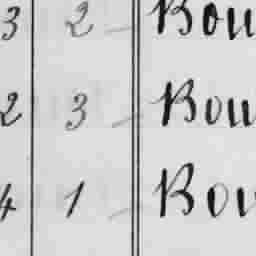 3 2 Bou
2 3 Bou
4 1 Bou